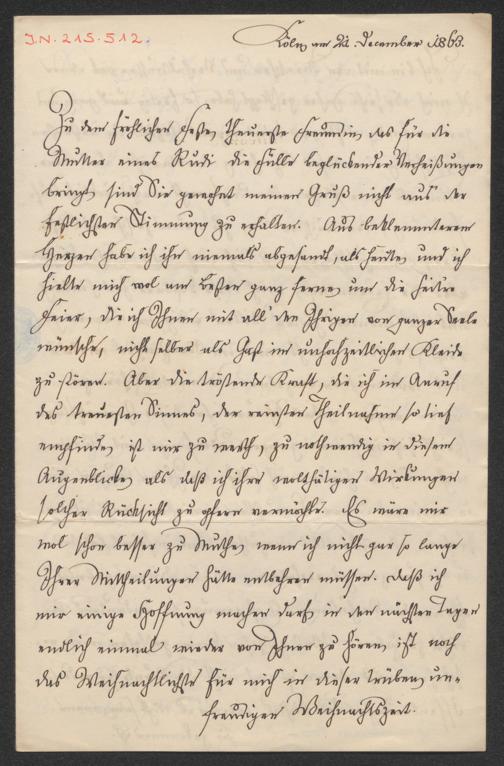 I.N. 215.512.
Köln am 21. December 1863.
Zu dem fröhlichen Feste, theuerste Freundin, das für die
Mutter eines Rudi die Fülle beglückender Verheißungen
bringt, sind Sie geneigt meinen Gruß nicht aus der
festlichsten Stimmung zu erhalten. Aus beklommnerem
Herzen habe ich ihn niemals abgesandt, als heute, und ich
hielte mich wol am Besten ganz ferne, um die heitre
Feier, die ich Ihnen mit all' den Ihrigen von ganzer Seele
wünsche, nicht selber als Gast im unhochzeitlichen Kleide
zu stören. Aber die tröstende Kraft, die ich im Anruf
des treuesten Sinnes, der reinsten Theilnahme so tief
empfinde, ist mir zu werth, zu nothwendig in diesem
Augenblicke, als daß ich ihre wolthätigen Wirkungen
solcher Rücksicht zu opfern vermöchte. Es wäre mir
wol schon besser zu Muthe, wenn ich nicht gar so lange
Ihrer Mittheilungen hätte entbehren müssen. Daß ich
mir einige Hoffnung machen darf, in den nächsten Tagen
endlich einmal wieder von Ihnen zu hören, ist noch
das Weihnachtlichste für mich in dieser trüben, un-
freudigen Weihnachtszeit.